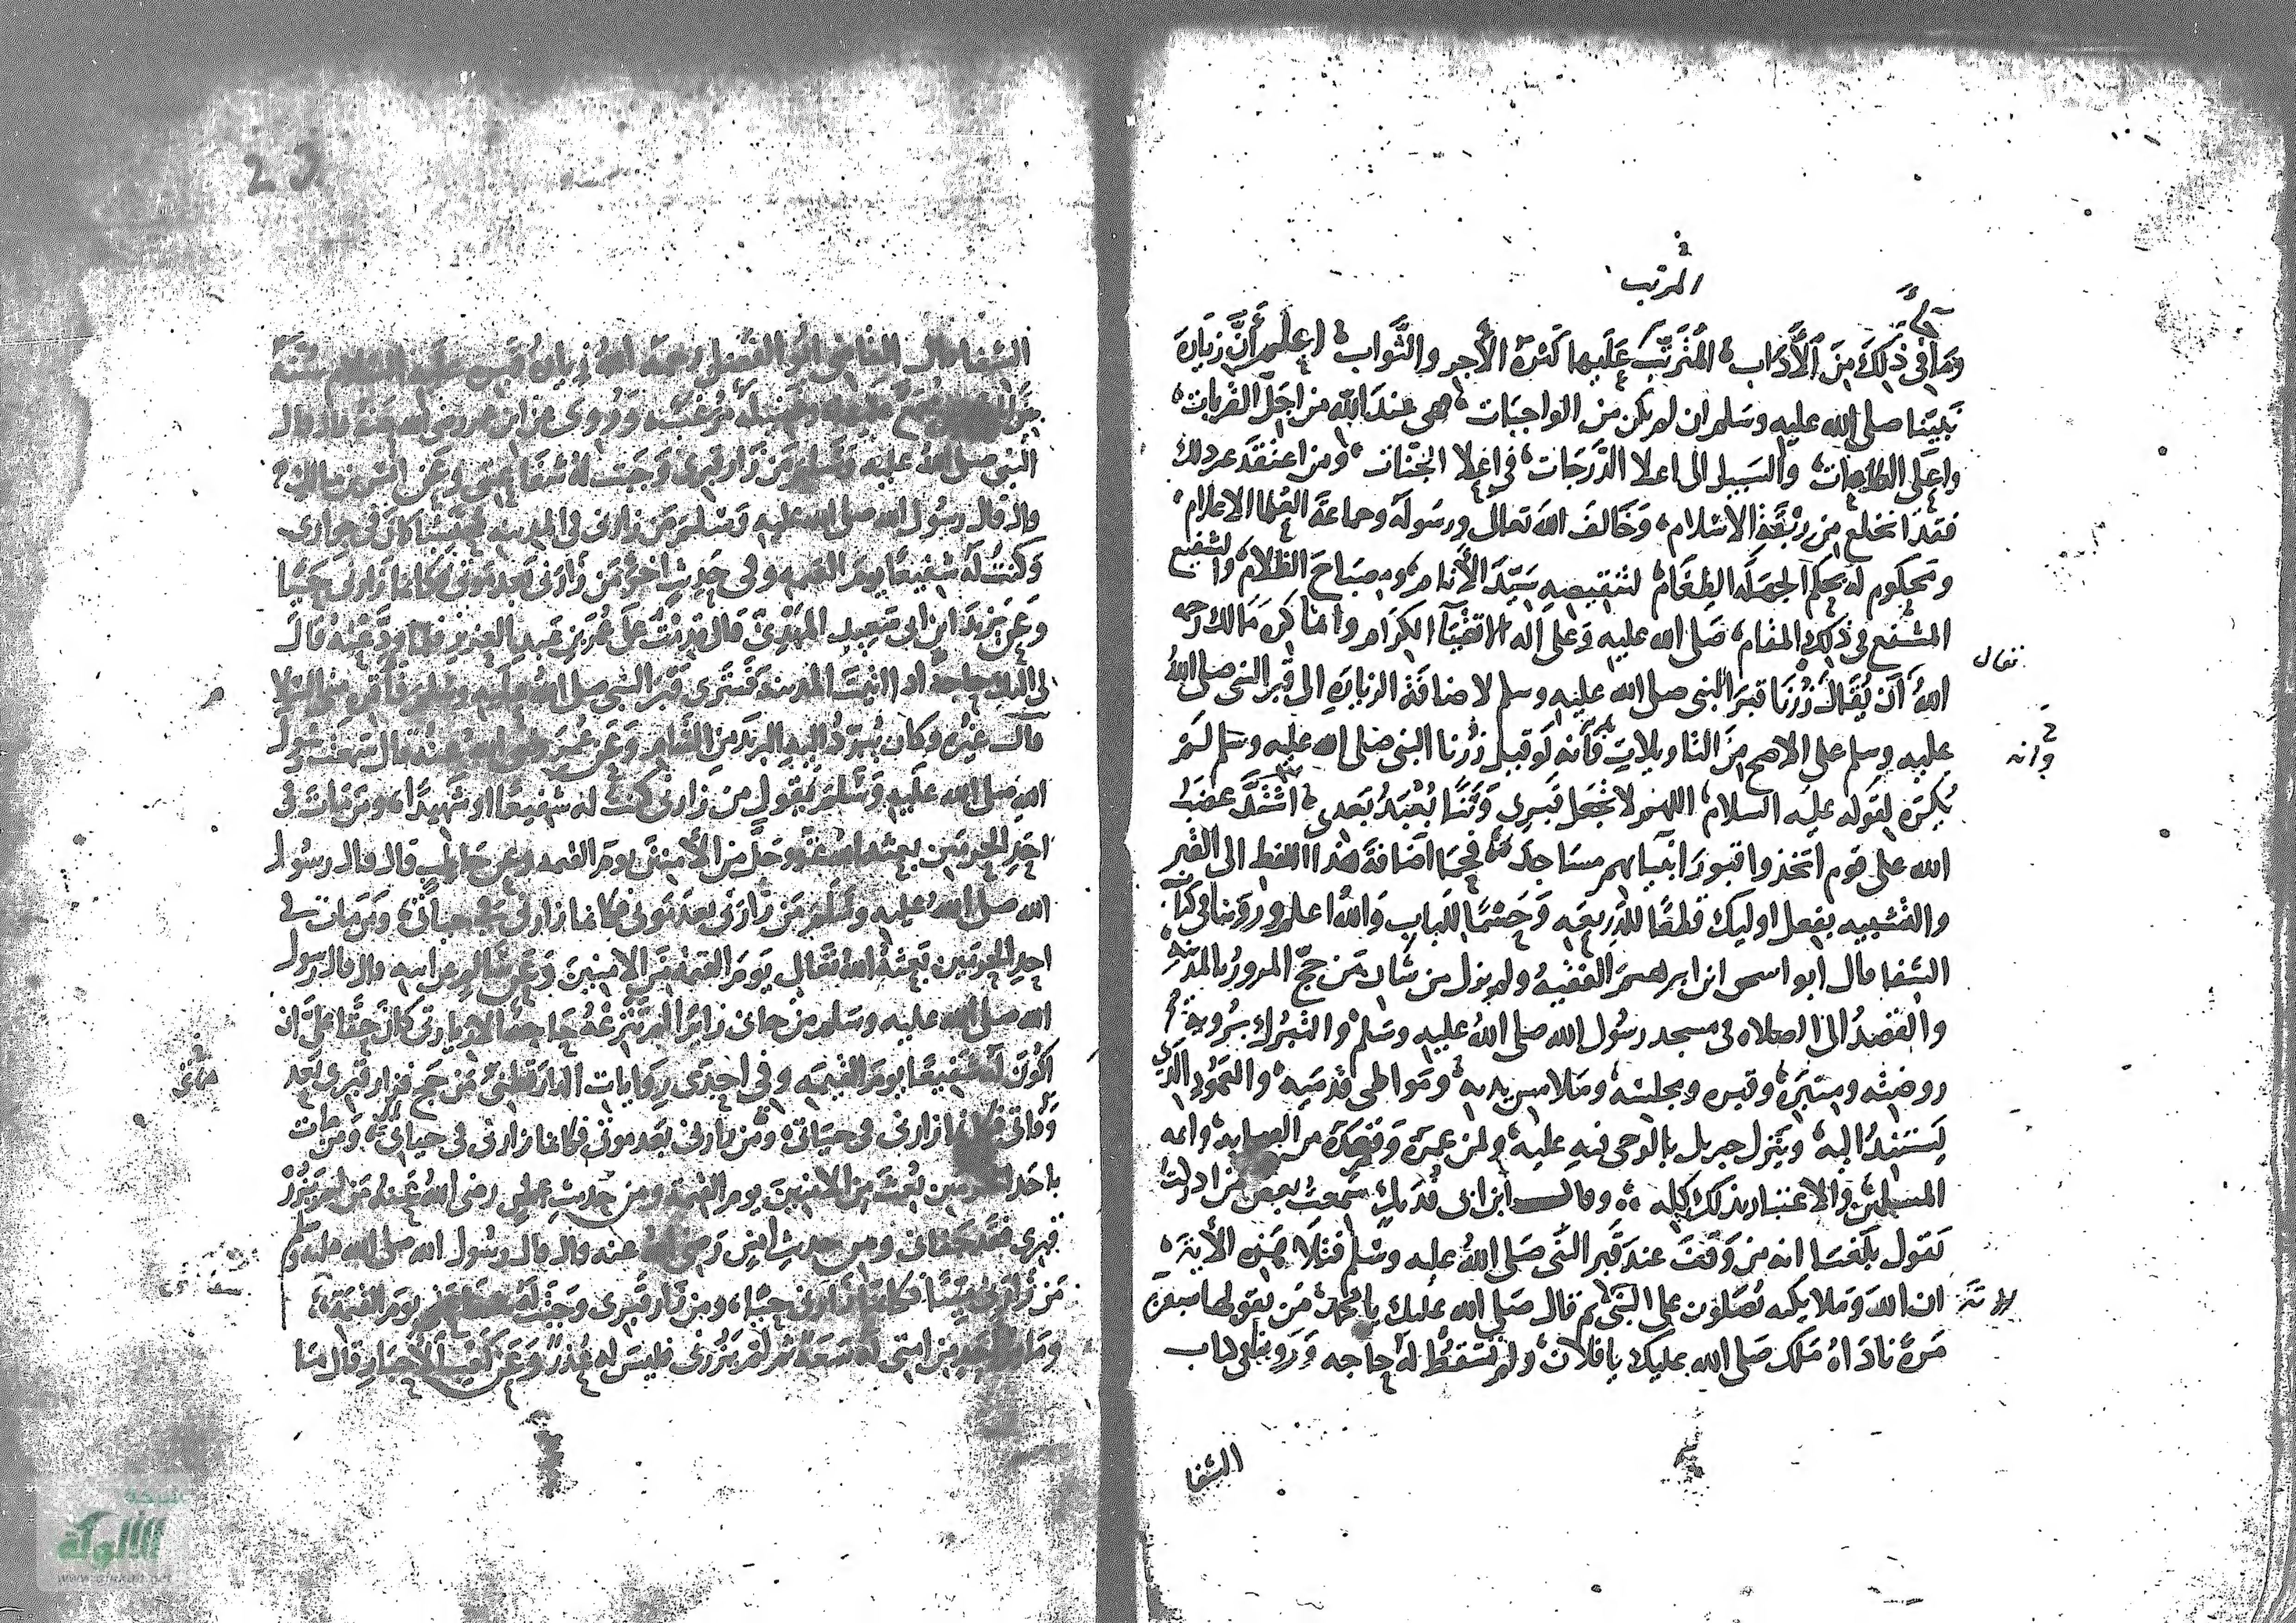 المرتب
وما في ذلك من الآداب المترتب عليها كثرة الأجر والثواب اعلم أن زيارة
نبينا صلى الله عليه وسلم ان لم يكن من الواجبات هي عند الله من اجل القربات
واعلى الطاعات والسبيل الى اعلا الدرجات في اعلا الجنات ومن اعتقد غير ذلك
فقد انخلع من ربقة الاسلام وخالف الله تعالى ورسوله وجماعة العلما الاعلام
ومحكوم له بحكم الجهلة الطغام لتنقيصه سيد الأنام ومصباح الظلام والشفيع
المشفع في ذلك المقام صلى الله عليه وعلى اله الاتقيآ الكرام وانما كره مالك رحمه
الله أن يقال زرنا قبر النبي صلى الله عليه وسلم لاضافة الزيارة الى قبر النبي صلى الله
تعالى
عليه وسلم على الاصح من التاويلات فأنه لو قيل زرنا النبي صلى الله عليه وسلم لم
وانه
يكره لقوله عليه السلام اللهم لا تجعل قبري وثنا يعبد بعدي اشتد غضب
الله على قوم اتخذوا قبور انبيائهم مساجد فحما اضافة هذا اللفظ الى القبر
والتشبيه بفعل اوليك قطعا للذريعه وحسما للباب والله اعلم وروينا في كتاب
الشفا قال ابو اسحق ابن ابرهيم الفقيه ولم يزل من شان من حج المرور بالمدينة
والقصد الى الصلاه في مسجد رسول الله صلى الله عليه وسلم والتبرك برؤية
روضته ومنبره وقبره ومجلسه وملامس يديه ومواطي قدميه والعمود الذي
يستند اليه وينزل جبريل بالوحي فيه عليه ولمن عمره وقصده من الصحابه وائمه
المسلمين والاعتبار بذلك كله وقال ابن ابي فديك سمعت بعض من ادركت
يقول بلغنا انه من وقف عند قبر النبي صلى الله عليه وسلم فتلا هذه الأية
ان الله وملايكته يصلون على النبي ثم قال صلى الله عليك يا محمد من يقولها سبعين
مرة ناداه ملك صلى الله عليك يا فلان ولم تسقط له حاجه وروينا في كتاب
الشفا
23
الشفا قال القاضي ابو الفضل رحمه الله زيارة قبره عليه السلام سنة
من وفضيلة مرغب وروي عن ابن عمر رضي الله عنه قال قال
النبي صلى الله عليه وسلم من زار قبري وجبت له شفاعتي وعن انس بن مالك
قال قال رسول الله صلى الله عليه وسلم من زارني في المدينه محتسبا كان في جواري
وكنت له شفيعا يوم القيمه وفي حديث اخر من زارني بعد موتي فكانما زارني حيا
وعن يزيد ابن ابي سعيد المهري قال قدمت على عمر بن عبد العزيز فلما ودعته قال
لي اليك حاجة اذا اتيت المدينة فسترى قبر النبي صلى الله عليه وسلم فاقره مني السلام
قال غيره وكان يبرد اليه البريد من الشام وعن عمر رضي الله عنه قال سمعت رسول
الله صلى الله عليه وسلم يقول من زارني كنت له شفيعا او شهيدا ومن مات في
احد الحرمين بعثه الله عز وجل من الآمنين يوم القيمه وعن حاطب قال قال رسول
الله صلى الله عليه وسلم من زارني بعد موتي فكانما زارني في حياتي ومن مات في
احد الحرمين بعثه الله تعالى يوم القيمة من الامنين وعن سالم عن ابيه قال قال رسول
الله صلى الله عليه وسلم من جاني زائرا لم تنزعه حاجه الا زيارتي كان حقا علي ان
اكون له شفيعا يوم القيمه وفي احدى روايات الدارقطني من حج فزار قبري بعد
وفاتي فكانما زارني في حياتي ومن زارني بعد موتي فكانما زارني في حياتي ومن مات
باحد الحرمين بعث من الامنين يوم القيمة ومن حديث علي رضي الله عنه من لم يزر
قبري فقد جفاني ومن حديث انس رضي الله عنه قال قال رسول الله صلى الله عليه وسلم
من زارني ميتا فكانما زارني حيا ومن زار قبري وجبت له شفاعتي يوم القيمة
وما من احد من امتي له سعة ثم لم يزرني فليس له عذر وعن كعب الأحبار قال ما
شبكة
الألوكة
www.alukah.net